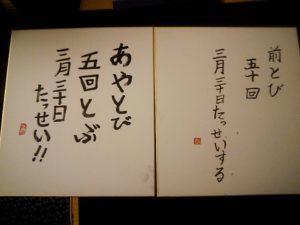 あやとび
五回とぶ
三月三十日
たっせい!!
前とび
五十回
三月三十日たっせいする